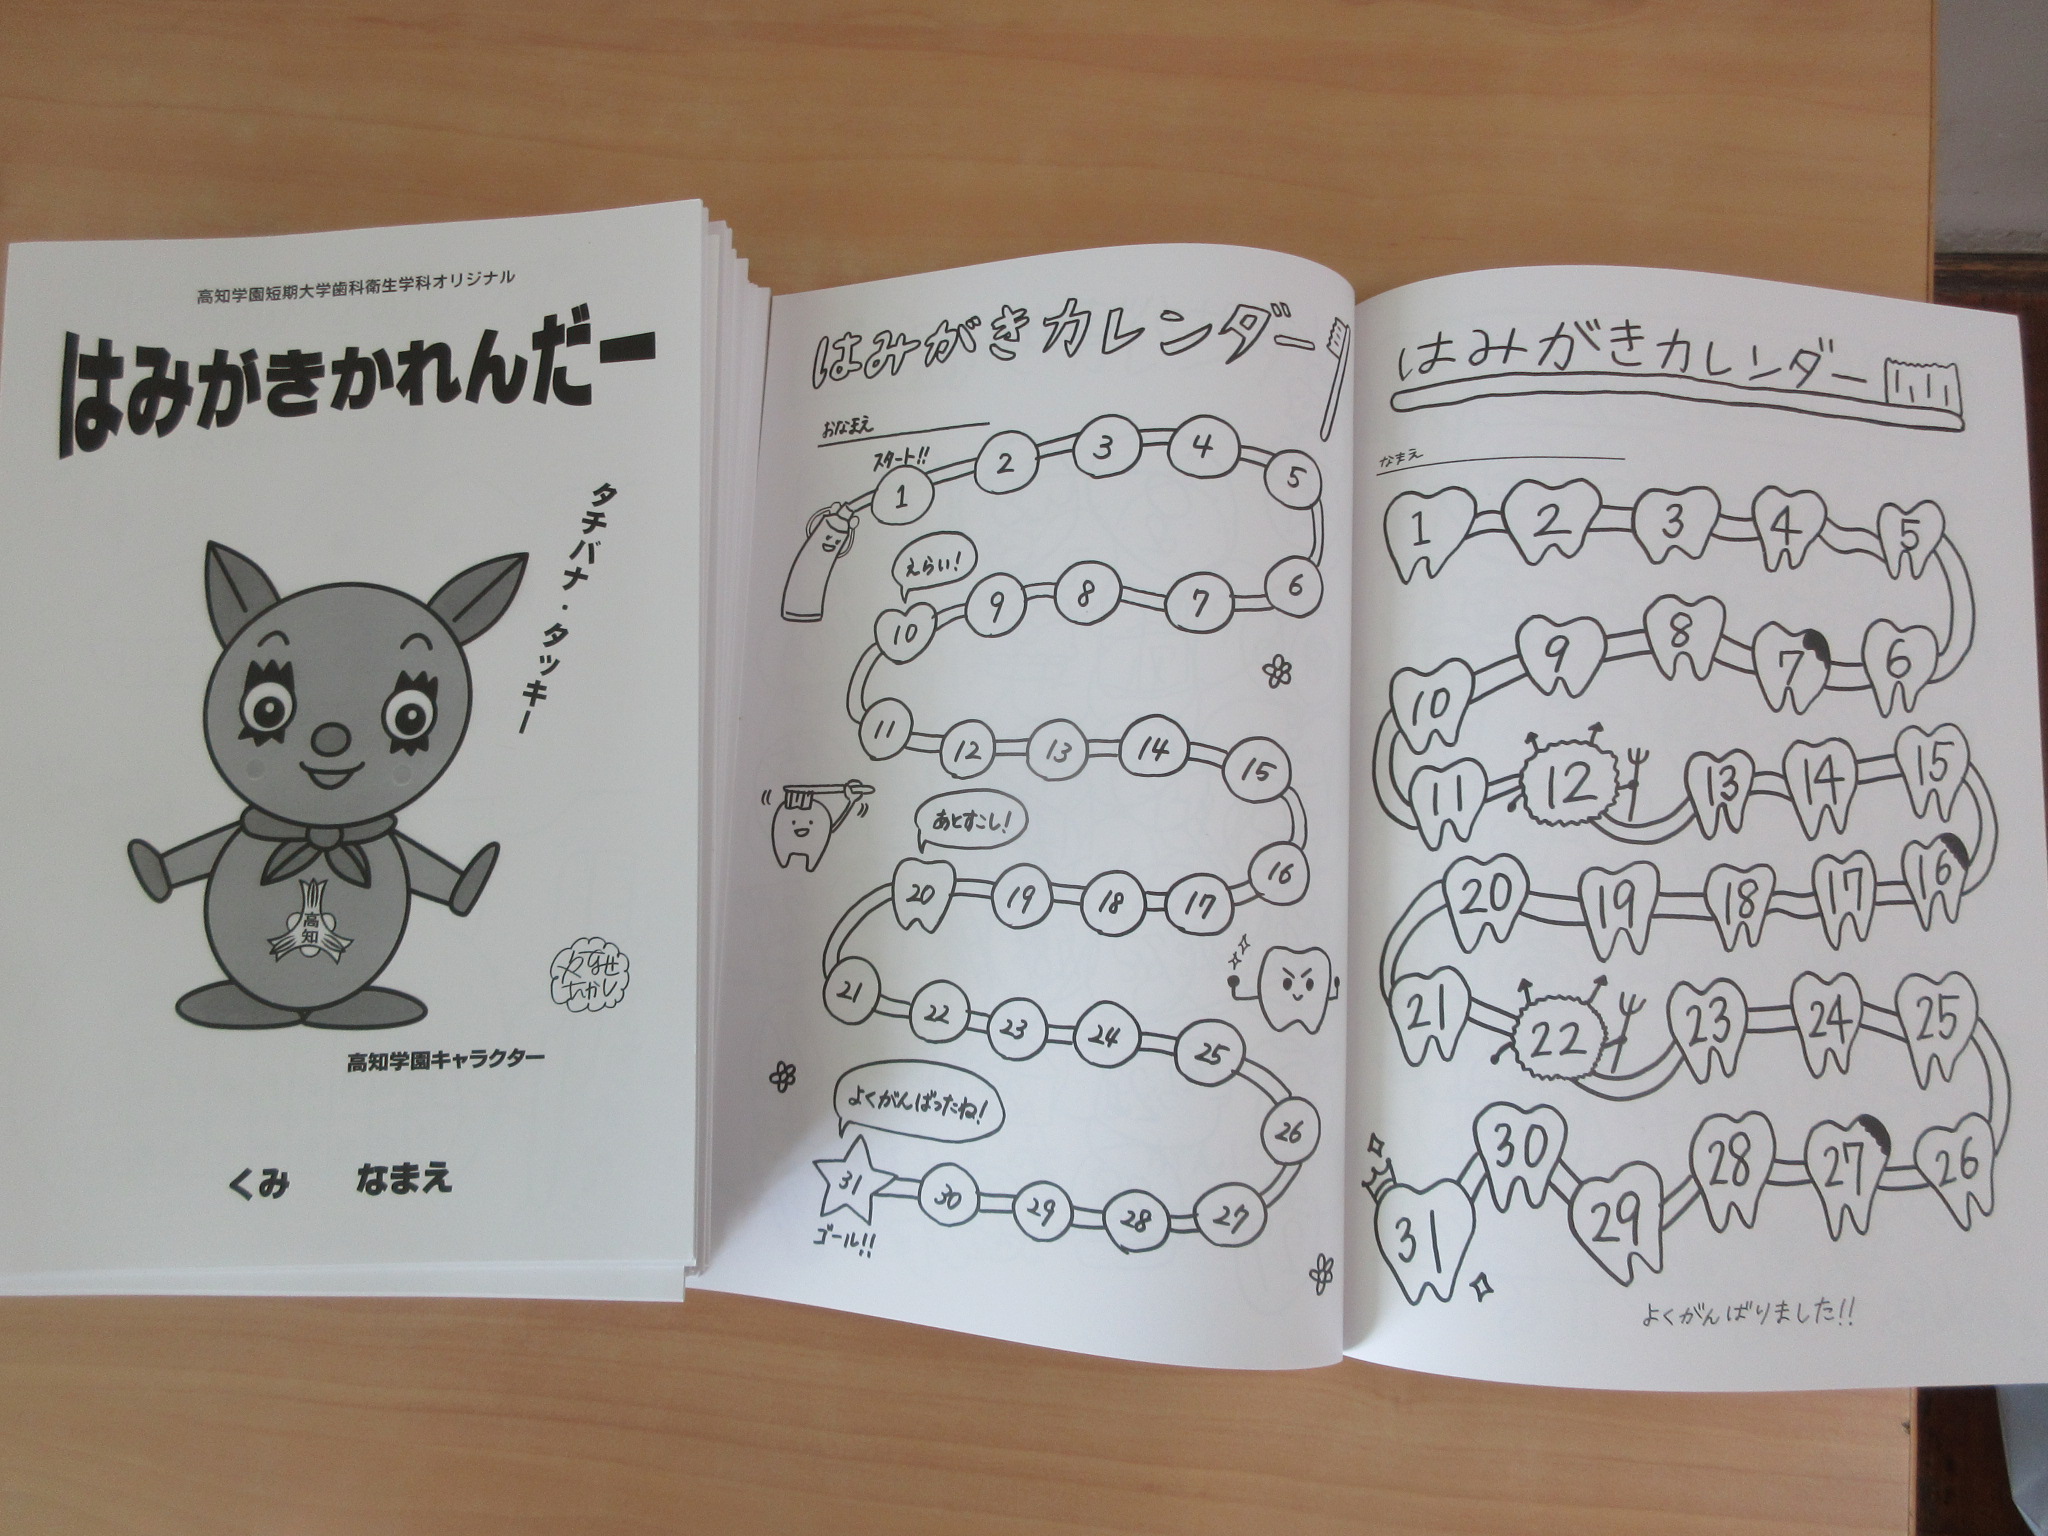 高知学園短期大学歯科衛生学科オリジナル
はみがきかれんだー
タチバナ・タッキー
高知
やなせ
たかし
高知学園キャラクター
くみ なまえ
はみがきカレンダー
おなまえ
スタート!!
1 2 3 4 5
えらい!
10 9 8 7 6
11 12 13 14 15
あとすこし!
20 19 18 17 16
21 22 23 24 25
よくがんばったね!
26
31 30 29 28 27
ゴール!!
はみがきカレンダー
なまえ
1 2 3 4 5
10 9 8 7 6
11 12 13 14 15
20 19 18 17 16
21 22 23 24 25
31 30 29 28 27 26
よくがんばりました!!